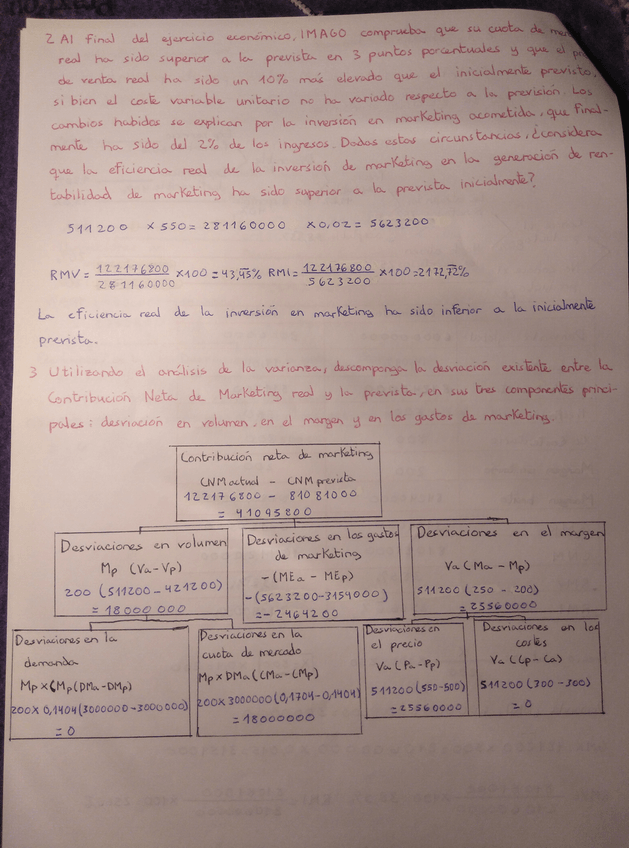 2 Al final del ejercicio económico, IMAGO comprueba que su cuota de
real ha sido superior a la prevista en 3 puntos porcentuales y que el
de venta real ha sido un 10% más elevado que el inicialmente previsto,
si bien el coste variable unitario no ha variado respecto a la previsión. Los
cambios habidos se explican por la inversión en marketing acometida, que final-
mente ha sido del 2% de los ingresos. Dadas estas circunstancias, ¿considera
que la eficiencia real de la inversión de marketing en la generación de ren-
tabilidad de marketing ha sido superior a la prevista inicialmente?
511200 × 550 = 281160000 × 0,02 = 5623200
RMV = 122176800 / 281160000 × 100 = 43,45% RMI = 122176800 / 5623200 × 100 = 2172,72%
La eficiencia real de la inversión en marketing ha sido inferior a la inicialmente
prevista.
3 Utilizando el análisis de la varianza, descomponga la desviación existente entre la
Contribución Neta de Marketing real y la prevista, en sus tres componentes princi-
pales: desviación en volumen, en el margen y en los gastos de marketing.
Contribución neta de marketing
CNM actual - CNM prevista
122176800 - 81081000
= 41095800
Desviaciones en volumen
Mp (Va-Vp)
200 (511200-421200)
= 18000000
Desviaciones en los gastos
de marketing
-(MEa - MEp)
-(5623200-3159000)
= -2464200
Desviaciones en el margen
Va (Ma - Mp)
511200 (250 - 200)
= 25560000
Desviaciones en la
demanda
Mp × CMp (DMa-DMp)
200 × 0,1404 (3000000-3000000)
= 0
Desviaciones en la
cuota de mercado
Mp × DMa (CMa-CMp)
200 × 3000000 (0,1704-0,1404)
= 18000000
Desviaciones en
el precio
Va (Pa-Pp)
511200 (550-500)
= 25560000
Desviaciones en los
costes
Va (Cp-Ca)
511200 (300-300)
= 0